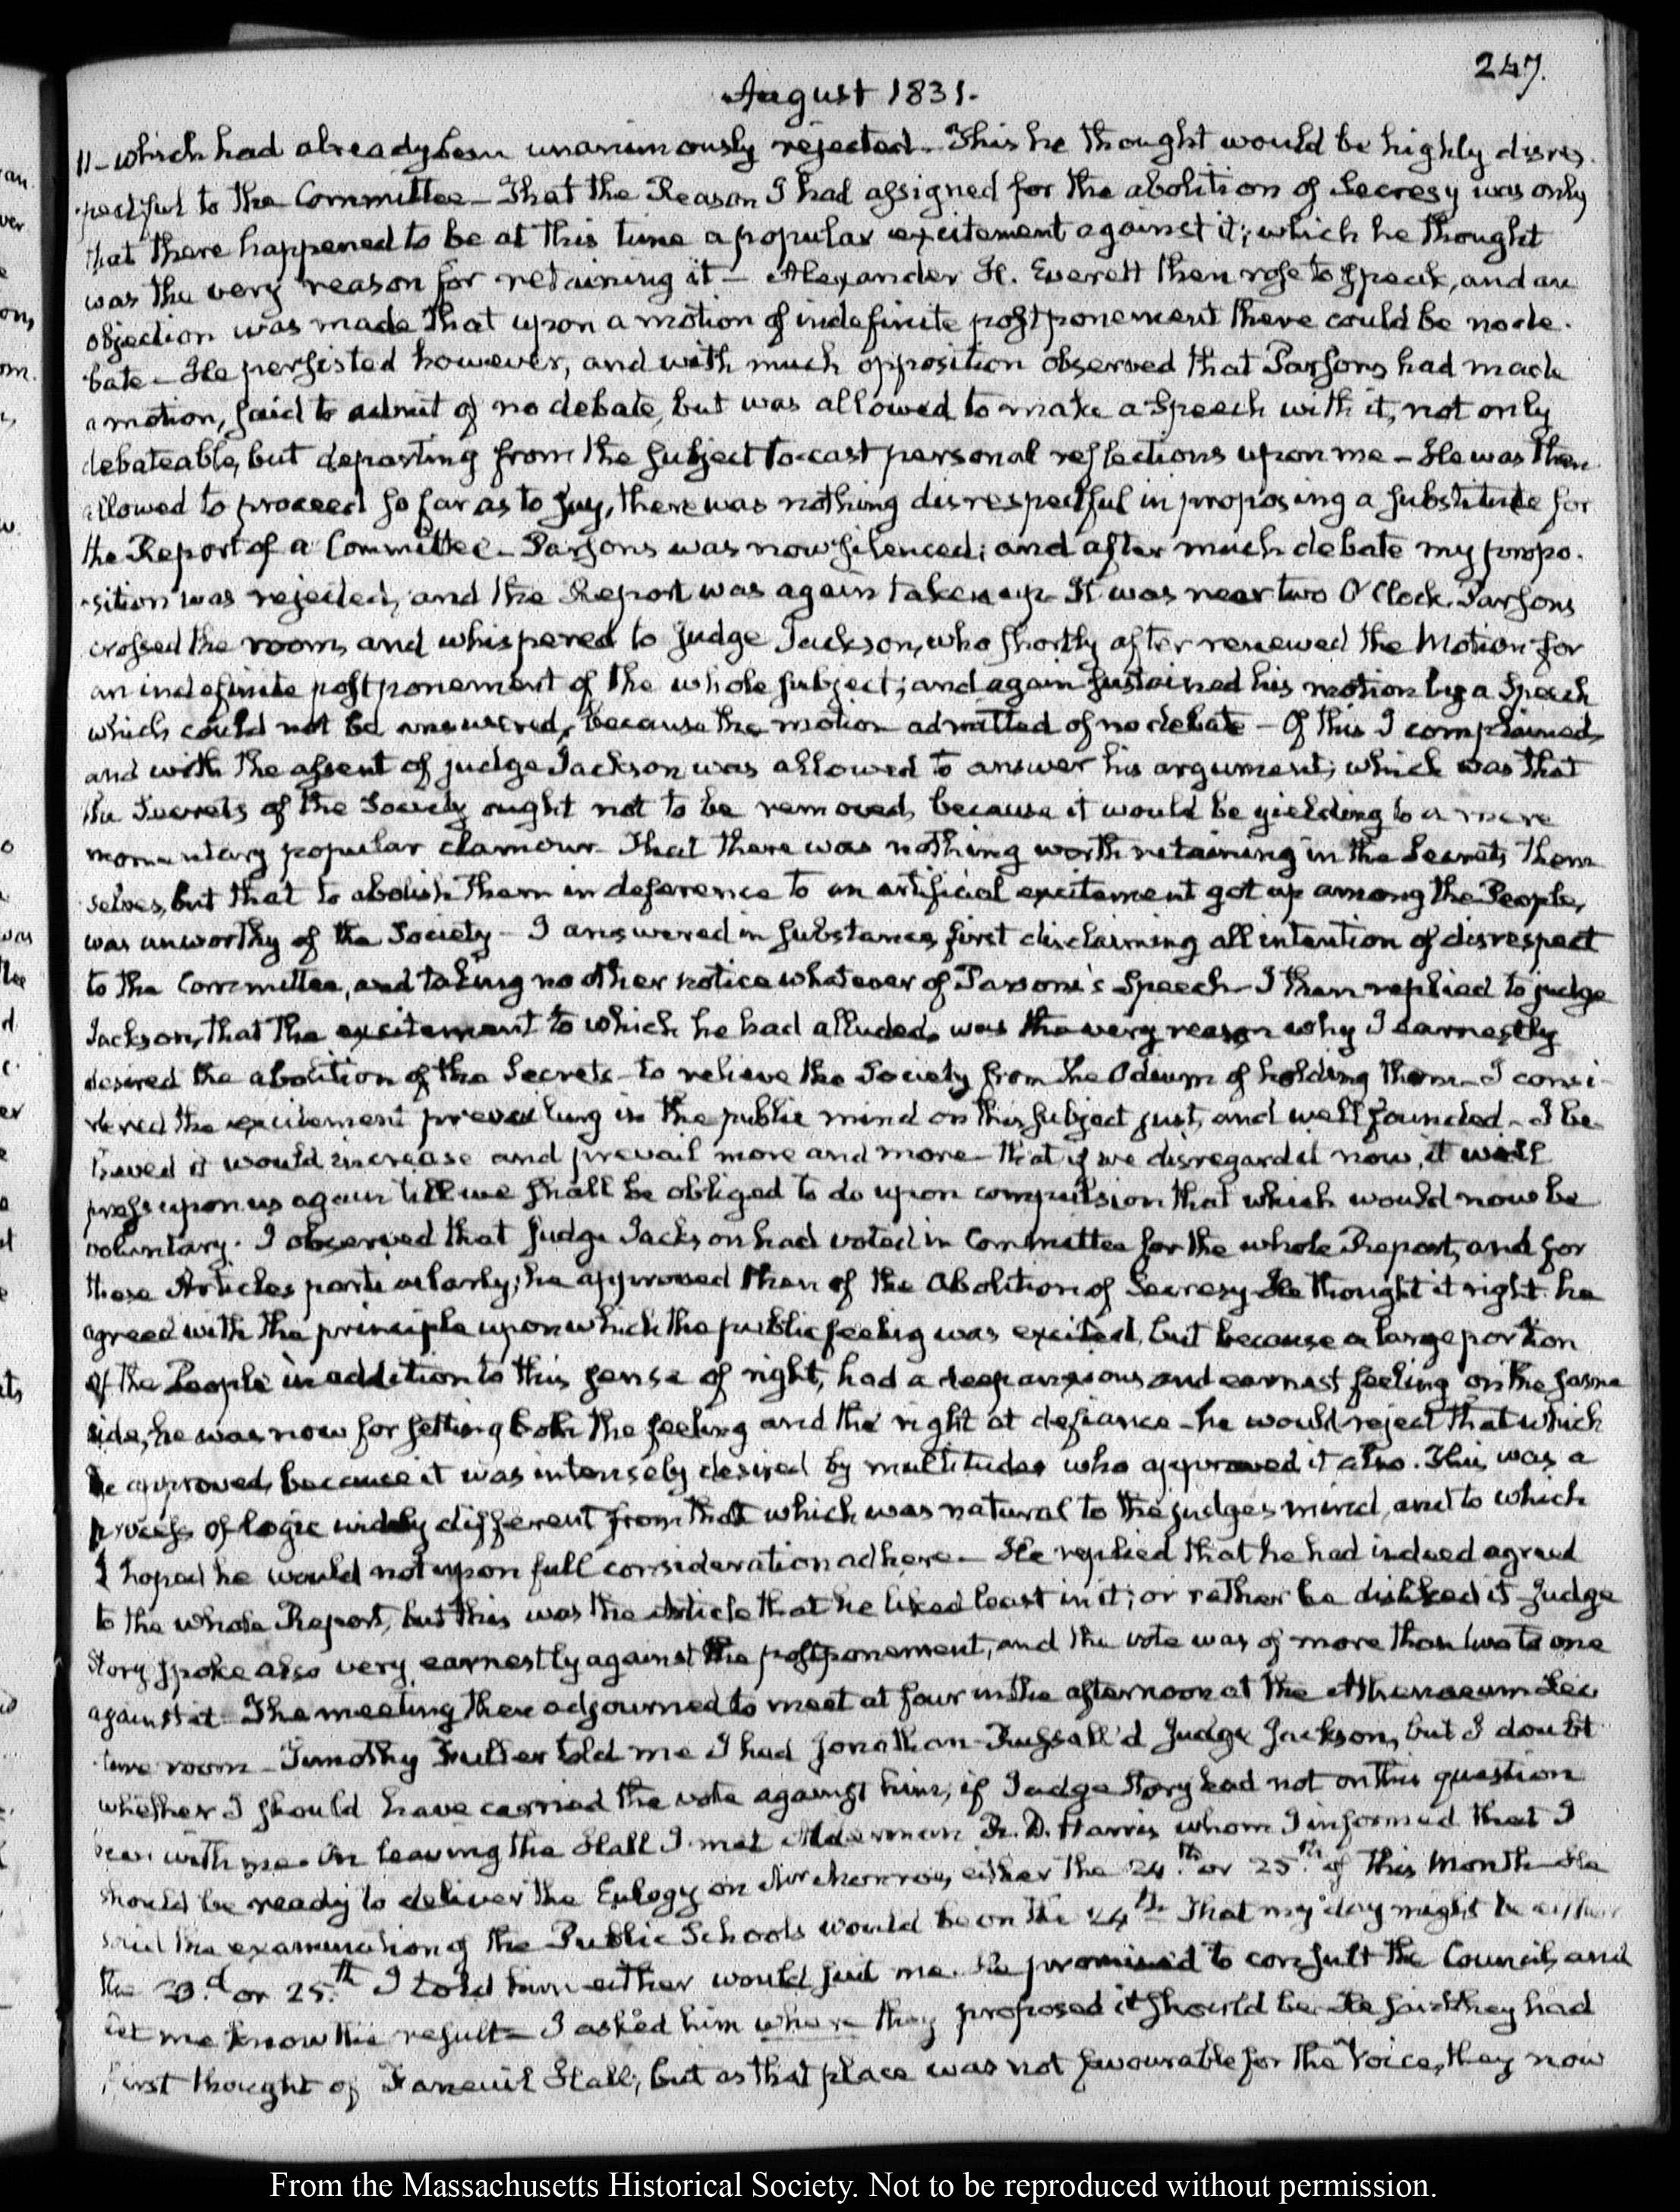 247.
August 1831.
11 - which had already been unanimously rejected. This he thought would be highly disres-
pectful to the Committee - That the Reason I had assigned for the abolition of Secresy was only
that there happened to be at this time a popular excitement against it; which he thought
was the very reason for retaining it - Alexander H. Everett then rose to speak, and an
objection was made that upon a motion of indefinite postponement there could be no de-
bate - He persisted however, and with much opposition observed that Parsons had made
a motion, said to admit of no debate, but was allowed to make a Speech with it, not only
debateable, but departing from the subject to cast personal reflections upon me - He was then
allowed to proceed so far as to say, there was nothing disrespectful in proposing a substitute for
the Report of a Committee - Parsons was now silenced; and after much debate my propo-
sition was rejected, and the Report was again taken up - It was near two O'Clock. Parsons
crossed the room, and whispered to Judge Jackson, who shortly after renewed the Motion for
an indefinite postponement of the whole subject; and again sustained his motion by a Speech
which could not be answered, because the motion admitted of no debate - Of this I complained,
and with the assent of judge Jackson was allowed to answer his argument; which was that
the Secrets of the Society ought not to be removed, because it would be yielding to a mere
momentary popular clamour - That there was nothing worth retaining in the Secrets them
selves, but that to abolish them in deference to an artificial excitement got up among the People,
was unworthy of the Society - I answered in substance, first disclaiming all intention of disrespect
to the Committee, and taking no other notice whatever of Parsons's Speech - I then replied to judge
Jackson, that the excitement to which he had alluded, was the very reason why I earnestly
desired the abolition of the Secrets - to relieve the Society from the Odium of holding them - I consi-
dered the excitement prevailing in the public mind on this subject just, and well founded - I be-
lieved it would increase and prevail more and more - that if we disregard it now, it will
press upon us again till we shall be obliged to do upon compulsion that which would now be
voluntary. I observed that Judge Jackson had voted in Committee for the whole Report, and for
these Articles particularly; he approved then of the Abolition of Secresy - He thought it right - he
agreed with the principle upon which the public feeling was excited, but because a large portion
of the People in addition to this sense of right, had a deep anxious and earnest feeling on the same
side, he was now for setting both the feeling and the right at defiance - he would reject that which
he approved, because it was intensely desired by multitudes who approved it also. This was a
process of logic widely different from that which was natural to the judges mind, and to which
I hoped he would not upon full consideration adhere - He replied that he had indeed agreed
to the whole Report, but this was the Article that he liked least in it; or rather he disliked it - Judge
Story spoke also very earnestly against the postponement, and the vote was of more than two to one
against it - The meeting then adjourned to meet at four in the afternoon at the Athenaeum Lec
ture room - Timothy Fuller told me I had Jonathan-Russell'd Judge Jackson, but I doubt
whether I should have carried the vote against him, if Judge Story had not on this question
been with me. On leaving the Hall I met Alderman R. D. Harris whom I informed that I
should be ready to deliver the Eulogy on Mr Monroe, either the 24.th or 25.th of this Month - He
said the examination of the Public Schools would be on the 24th That my day might be either
the 23.d or 25.th I told him either would suit me. He promised to consult the Council, and
let me know the result - I asked him where they proposed it should be - He said they had
first thought of Faneuil Hall; but as that place was not favourable for the Voice, they now